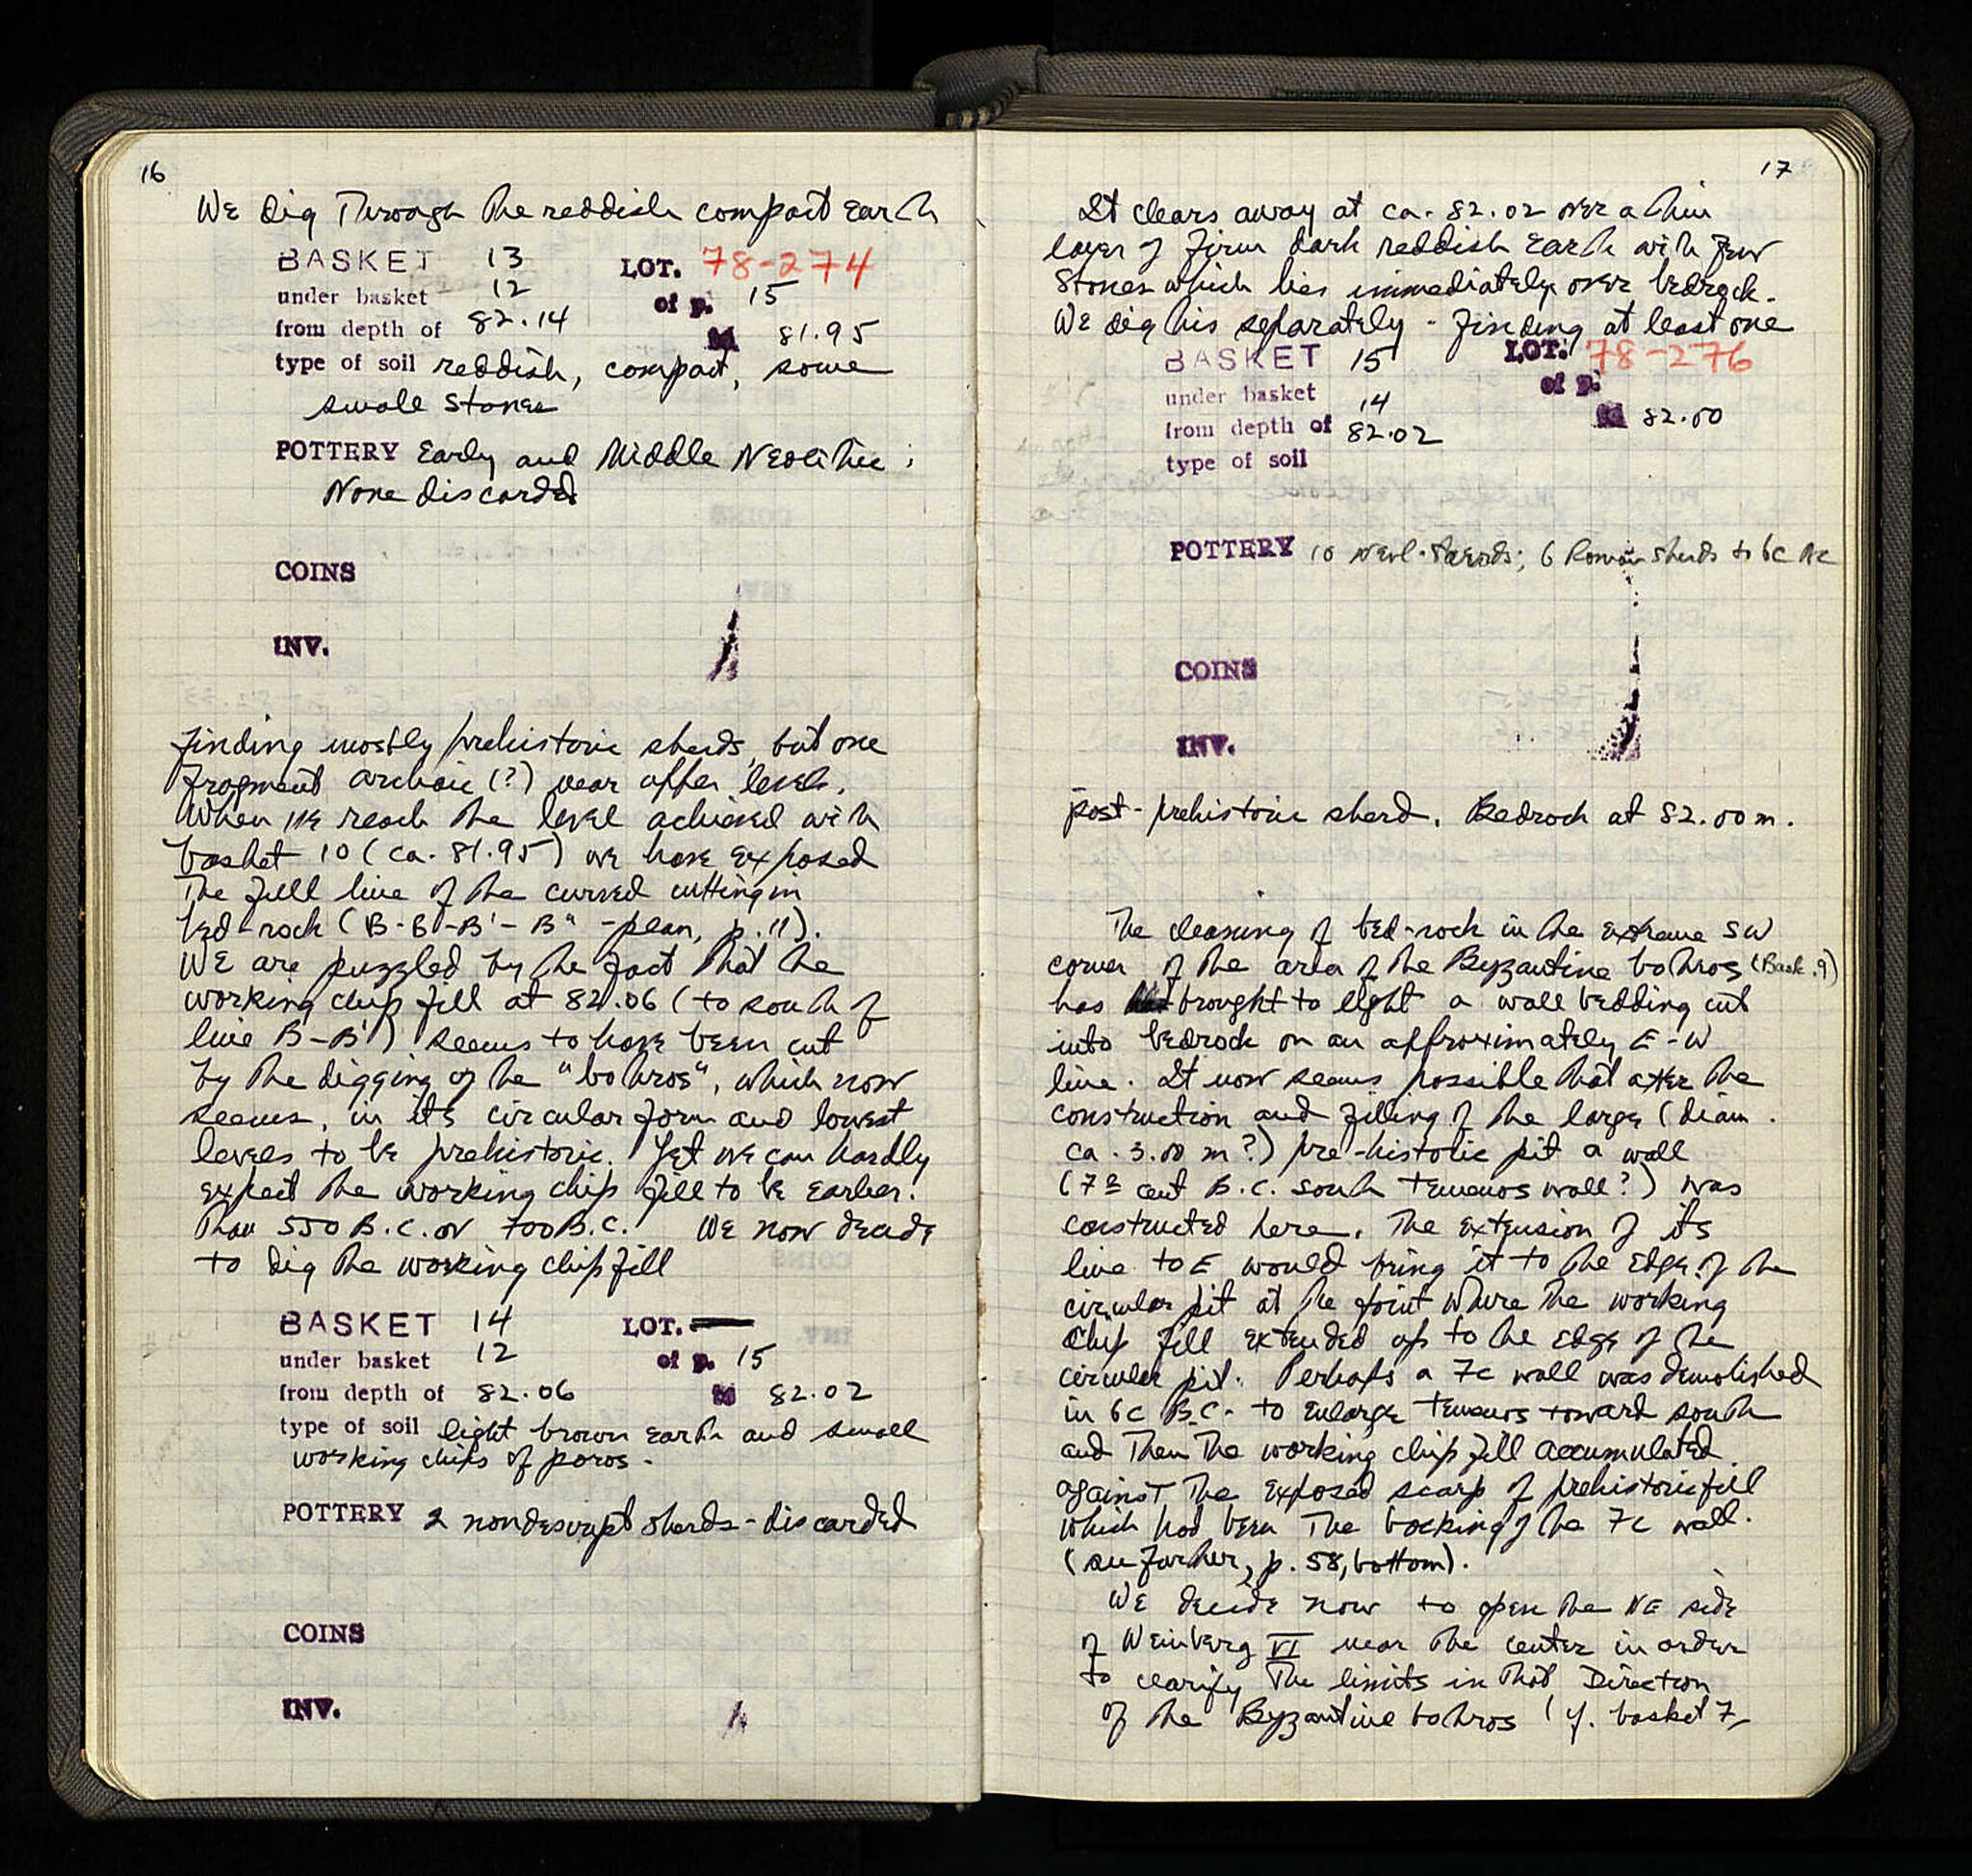 16
We dig through the reddish compact earth
BASKET 13 LOT. 78-274
under basket 12 of p. 15
from depth of 82.14 to 81.95
type of soil reddish, compact, some
small stones
POTTERY Early and Middle Neolithic;
None discarded
COINS
INV.
finding mostly prehistoric sherds, but one
fragment archaic (?) near upper level.
When we reach the level achieved with
basket 10 (ca. 81.95) we have exposed
the full line of the curved cutting in
bed-rock (B-B-B'-B" -plan, p.11).
We are puzzled by the fact that the
working chip fill at 82.06 (to south of
line B-B') seems to have been cut
by the digging of the "bothros", which now
seems, in its circular form and lowest
levels to be prehistoric. Yet we can hardly
expect the working chip fill to be earlier.
than 550 B.C. or 700 B.C. We now decide
to dig the working chip fill
BASKET 14 LOT.
under basket 12 of p. 15
from depth of 82.06 to 82.02
type of soil light brown earth and small
working chips of poros.
POTTERY 2 nondescript sherds - discarded
COINS
INV.
17
It clears away at ca. 82.02 over a thin
layer of firm dark reddish earth with few
stones which lies immediately over bedrock.
We dig this separately - finding at least one
BASKET 15 LOT. 78-276
under basket 14 of p.
from depth of 82.02 to 82.00
type of soil
POTTERY 10 Neol. sherds; 6 Roman sherds to 6c AC
COINS
INV.
post-prehistoric sherd. Bedrock at 82.00 m.
The cleaning of bed-rock in the extreme SW
corner of the area of the Byzantine bothros (Bask. 9)
has brought to light a wall bedding cut
into bedrock on an approximately E-W
line. It now seems possible that after the
construction and filling of the large (diam.
ca. 3.00 m?) pre-historic pit a wall
(7th cent B.C. south temenos wall?) was
constructed here. The extension of its
line to E would bring it to the edge of the
circular pit at the point where the working
chip fill extended up to the edge of the
circular pit. Perhaps a 7c wall was demolished
in 6c B.C. to enlarge temenos toward south
and then the working chip fill accumulated
against the exposed scarp of prehistoric fill
which had been the backing of the 7c wall.
(see further, p. 58, bottom).
We decide now to open the NE side
of Weinberg VI near the center in order
to clarify the limits in that direction
of the Byzantine bothros (cf. basket 7,